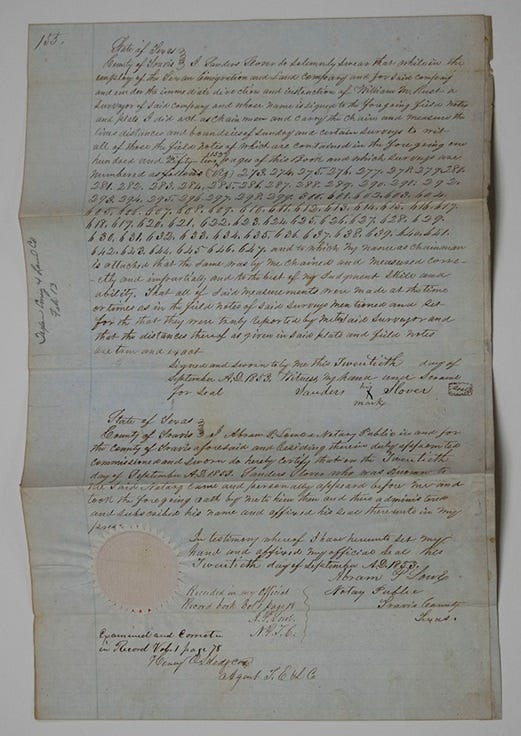 153.
State of Texas
County of Travis I Sanders Stover do Solemnly Swear that while in the
employ of the Texan Emigration and Land Company and for said Company
and under the immediate direction and instruction of William M. Rust a
Surveyor of Said Company and whose name is signed to the foregoing field Notes
and plats I did act as Chain man and Carry the chain and measure the
lines distances and boundries of Sunday and certain surveys to wit
all of those the field notes of which are contained in the fore going one
hundred and Fifty two (152) pages of this Book and which surveys are
numbered as follows (Viz) 273, 274, 275, 276, 277, 278, 279, 280,
281, 282, 283, 284, 285, 286, 287, 288, 289, 290, 291, 292,
293, 294, 295, 296, 297, 298, 299, 300, 601, 602, 603, 604,
605, 606, 607, 608, 609, 610, 611, 612, 613, 614, 615, 616, 617,
618, 619, 620, 621, 622, 623, 624, 625, 626, 627, 628, 629,
630, 631, 632, 633, 634, 635, 636, 637, 638, 639, 640, 641,
642, 643, 644, 645, 646, 647, and to which My Name as Chainman
is attached that the same was by me Chained and measured corre-
ctly and impartially and to the best of my Judgment Skill and
ability. That all of Said measurements were made at the time
or times as in the field notes of Said Surveys Mentioned and Set
forth that they were truly reported by me to Said Surveyor and
that the distances thereof as given in Said plats and field Notes
are true and exact
Signed and Sworn to by Me this Twentieth day of
September A.D. 1853. Witness My hand and Scrawl
for Seal Sanders his X mark Stover Seal
State of Texas
County of Travis I Abram P. a Notary Public in and for
the County of Travis aforesaid and residing therein duly appointed
Commissioned and Sworn do hereby certify that on the Twentieth
day of September A.D. 1853. Sanders Stover who was Known to
the Said Notary Came and personally appeared before me and
took the foregoing oath by me to him then and there administered
and subscribed his name and affixed his Seal thereunto in my
presence
In testimony whereof I have hereunto Set my
hand and affixed My official Seal this
Twentieth day of September A.D. 1853.
Abram
Notary Public
Travis County
Texas.
Recorded in my Official
Record book Vol 1 page 18
N.P.T.C.
Examined and Correct
in Record Vol. 1 page 78
Henry
Agent T.E & L Co